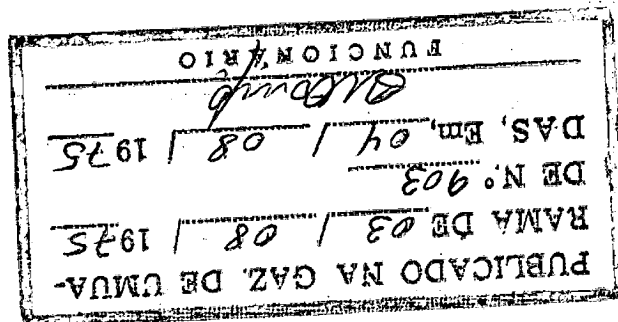 PUBLICADO NA GAZ. DE UMUA-
RAMA DE 03 / 08 / 1975
DE N.º 903
DAS, Em, 04 / 08 / 1975
FUNCIONÁRIO